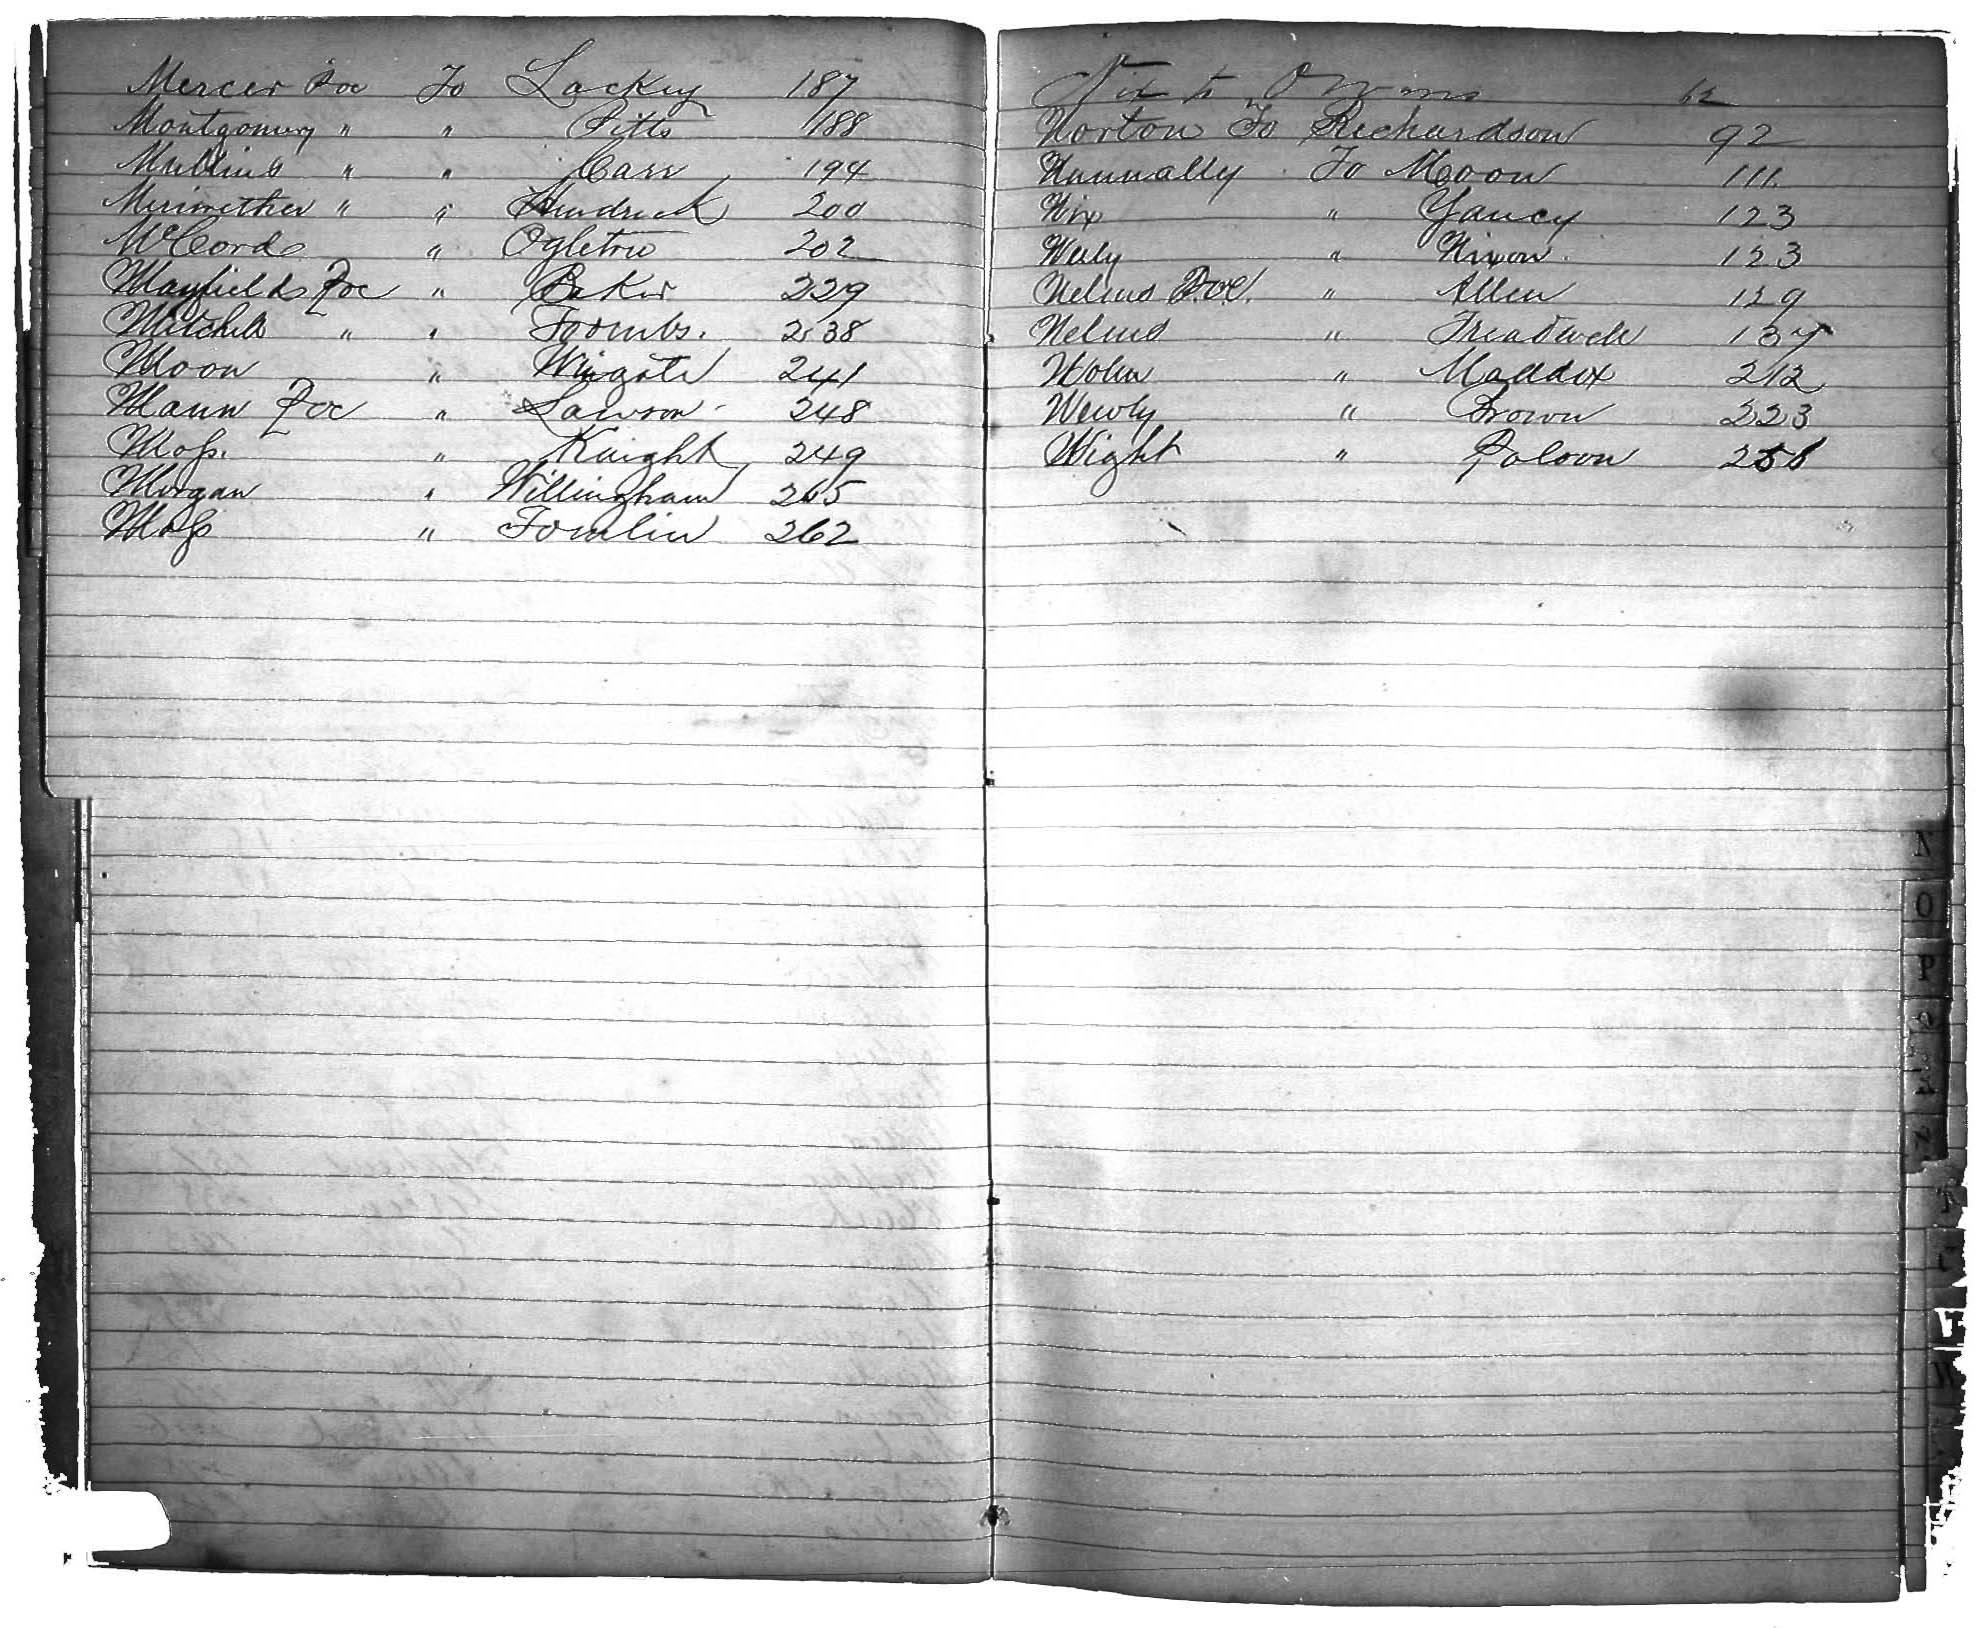 Mercer Foc To Lackey 187
Montgomery " " Pitts 188
Mullins " " Carr 194
Merimether " " Hendrick 200
McCord " Ogletree 202
Mayfield Foc " Baker 229
Mitchell " " Toombs. 238
Moon " Wingate 241
Mann Foc " Lawson 248
Moss. " Knight 249
Morgan " Willingham 265
Moss " Tomlin 262
Nix to Owens 62
Norton To Richardson 92
Nunnally To Moon 111.
Nix " Yancy 123
Neely " Nixon. 123
Nelms Foc. " Allen 129
Nelms " Treadwell 137
Nolen " Maddox 212
Newly " Brown 223
Night "
N
O
P
W